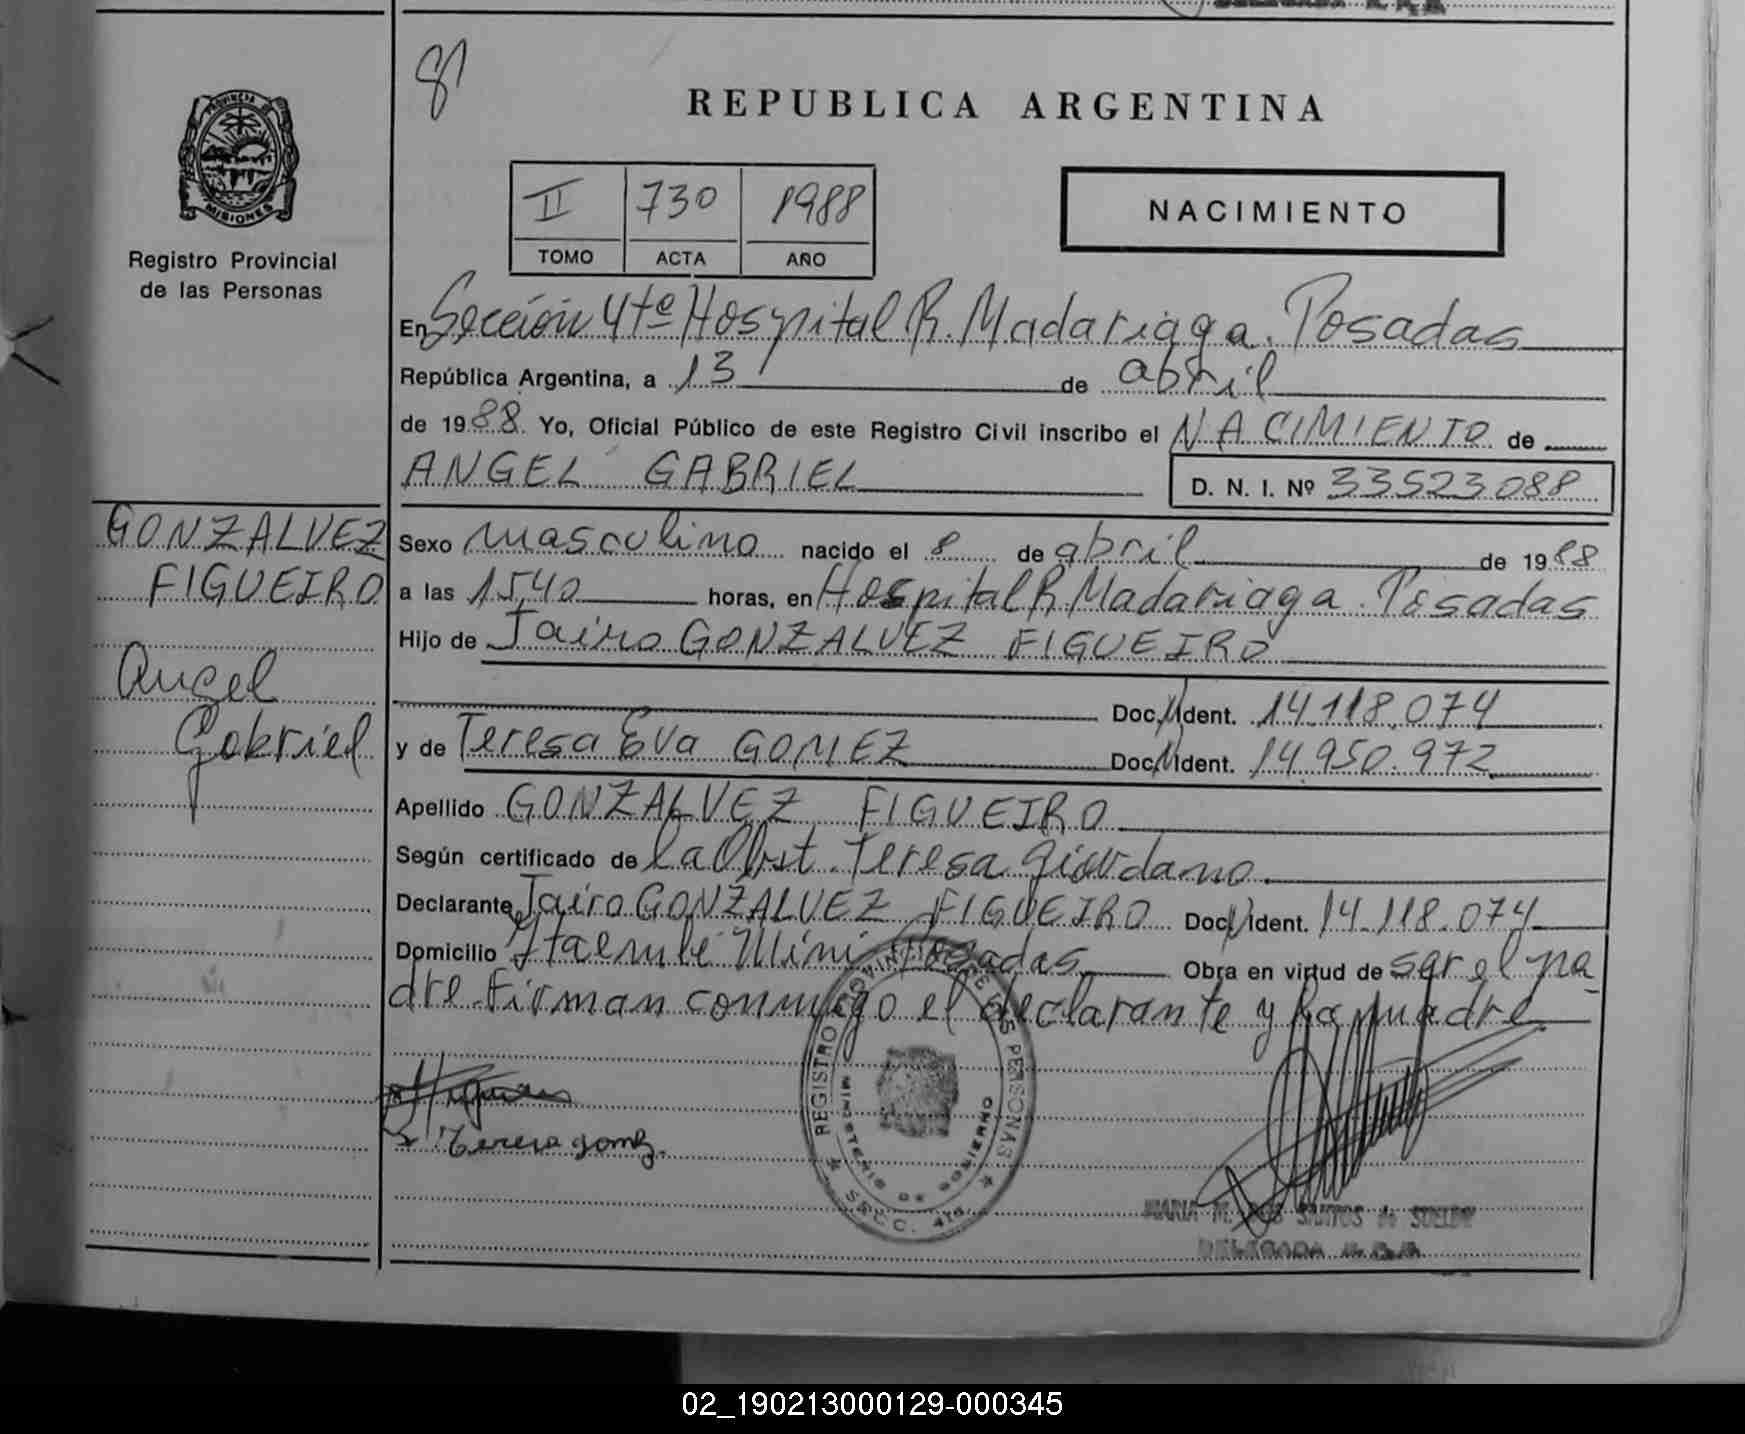 81
REPUBLICA ARGENTINA
PROVINCIA DE
MISIONES
Registro Provincial
de las Personas
II 730 1988
TOMO ACTA AÑO
NACIMIENTO
En Sección 4ta Hospital R. Madariaga. Posadas
República Argentina, a 13 de abril
de 1988 Yo, Oficial Público de este Registro Civil inscribo el NACIMIENTO de
ANGEL GABRIEL D. N. I. Nº 33523088
GONZALVEZ
FIGUEIRO
Angel
Gabriel
Sexo masculino nacido el 8 de abril de 1988
a las 15,40 horas, en Hospital R. Madariaga. Posadas
Hijo de Jairo GONZALVEZ FIGUEIRO
Doc. N Ident. 14.118.074
y de Teresa Eva GOMEZ Doc. N Ident. 14.950.972
Apellido GONZALVEZ FIGUEIRO
Según certificado de la Obst. Teresa Giordano
Declarante Jairo GONZALVEZ FIGUEIRO Doc. N Ident. 14.118.074
Domicilio Itaembé Miní Posadas Obra en virtud de ser el pa-
dre. Firman conmigo el declarante y la madre
REGISTRO PROVINCIAL DE LAS PERSONAS
MINISTERIO DE GOBIERNO
SECC. 4ta.
Teresa gomez.
MARIA M. DOS SANTOS de
DELEGADA R.P.P.
02_190213000129-000345